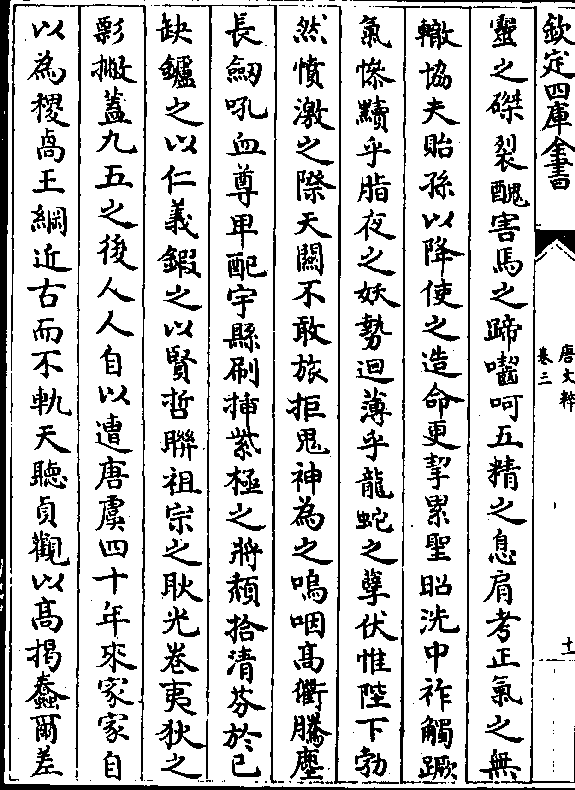 欽定四庫全書
唐文粹
卷三
十
靈之磔裂醜害馬之蹄嚙呵五精之息肩考正氣之無
轍協夫貽孫以降使之造命更挈累聖昭洗中祚觸蹶
氣慘黷乎脂夜之妖勢迴薄乎龍蛇之孽伏惟陛下勃
然憤激之際天闗不敢旅拒鬼神為之嗚咽髙衢騰塵
長劒吼血尊卑配宇縣刷揷紫極之將頽拾清芬於已
缺鑪之以仁義鍜之以賢哲聯祖宗之耿光卷夷狄之
影撇蓋九五之後人人自以遭唐虞四十年來家家自
以為稷卨王綱近古而不軌天聽貞觀以髙揭蠢爾差